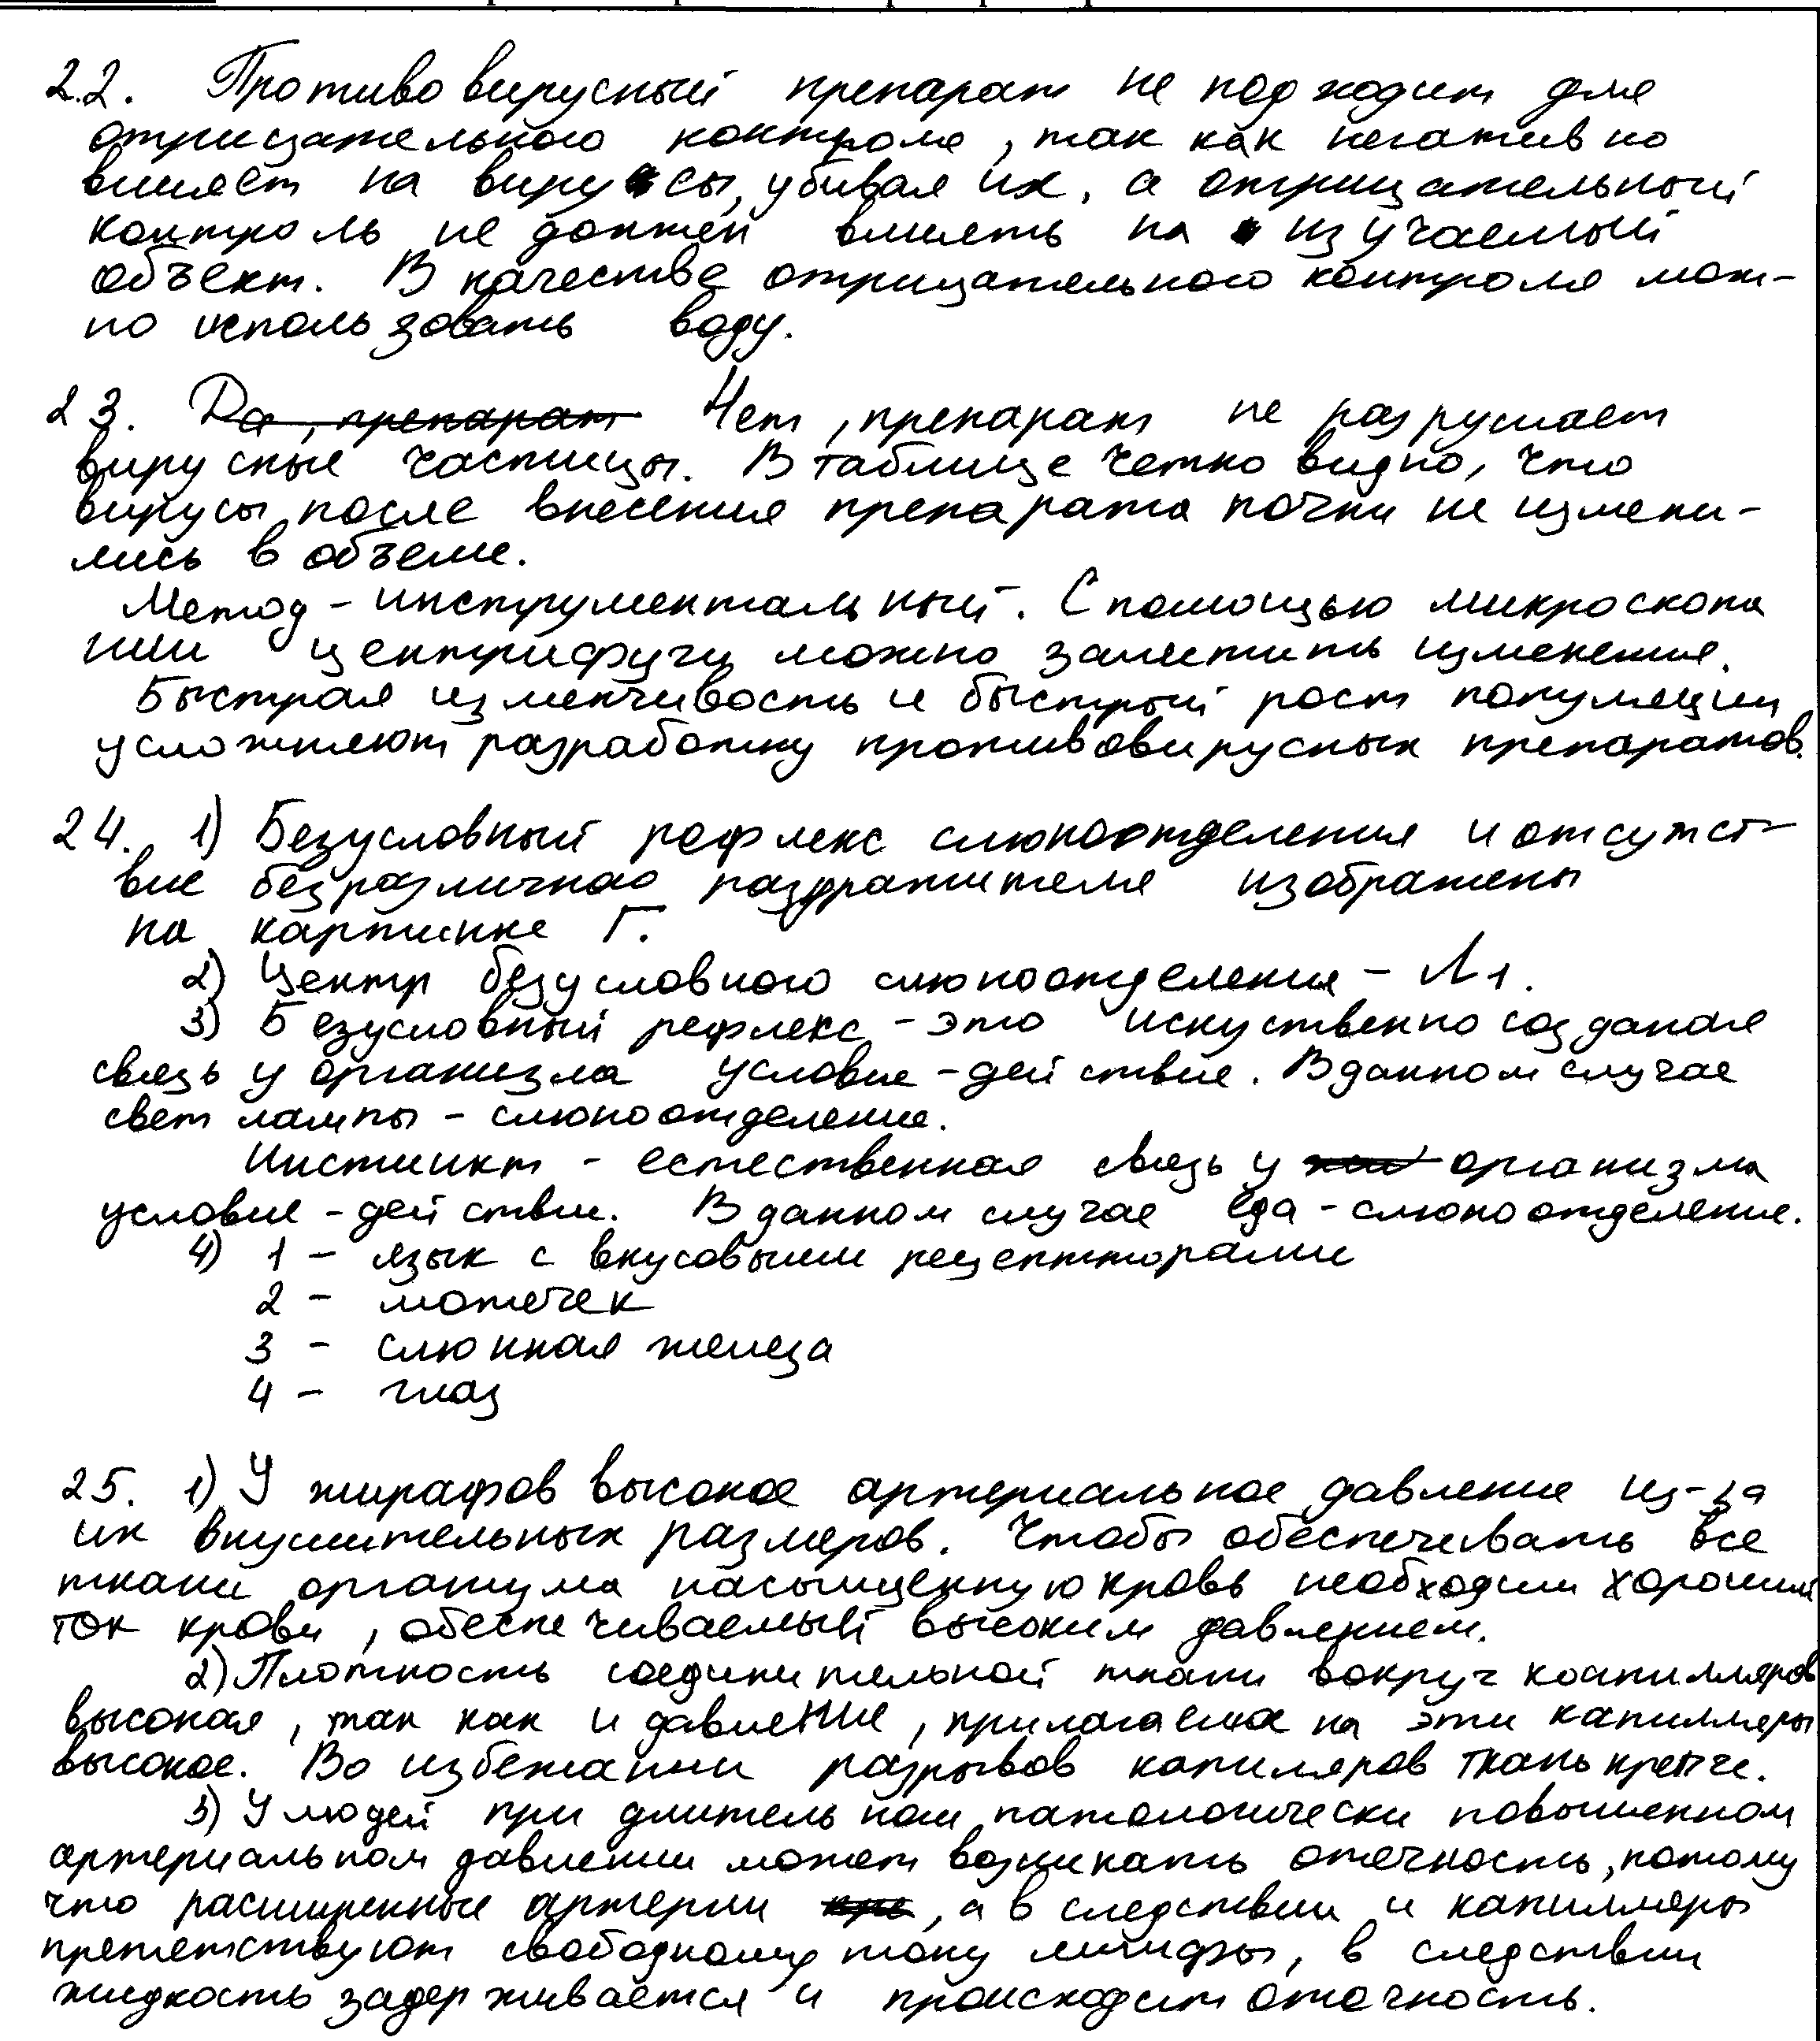 22. Противовирусный препарат не подходит для
отрицательного контроля, так как негативно
влияет на вирусы, убивая их, а отрицательный
контроль не должен влиять на изучаемый
объект. В качестве отрицательного контроля мож-
но использовать воду.
23. Да, препарат Нет, препарат не разрушает
вирусные частицы. В таблице четко видно, что
вирусы после внесения препарата почти не измени-
лись в объеме.
Метод - инструментальный. С помощью микроскопа
или центрифуги можно заметить изменения.
Быстрая изменчивость и быстрый рост популяции
усложняют разработку противовирусных препаратов.
24. 1) Безусловный рефлекс слюноотделения и отсутст-
вие безразличнао раздражителя изображены
на картинке Г.
2) Центр безусловного слюноотделения - Л1.
3) Безусловный рефлекс - это искуственно созданая
связь у организма условие - действие. В данном случае
свет лампы - слюноотделение.
Инстинкт - естественная связь у организма
условие - действие. В данном случае еда - слюноотделение.
4) 1 - язык с вкусовыми рецептторами
2 - мотечек
3 - слюнная железа
4 - глаз
25. 1) У жирафов высокое артериальное давление из-за
их внушительных размеров. Чтобы обеспечивать все
ткани организма насыщенную кровь необходим хороший
ток крови, обеспечиваемый высоким давлением.
2) Плотность соединительной ткани вокруг капилляров
высокая, так как и давление, прилагаемое на эти капилляры
высокое. Во избежании разрывов капиляров ткань крепче.
3) У людей при длительном патологически повышенном
артериальном давлении может возникать отечность, потому
что расширенные артерии, а в следствии и капилляры
препятствуют свободному току лимфы, в следствии
жидкость задерживается и происходит отечность.